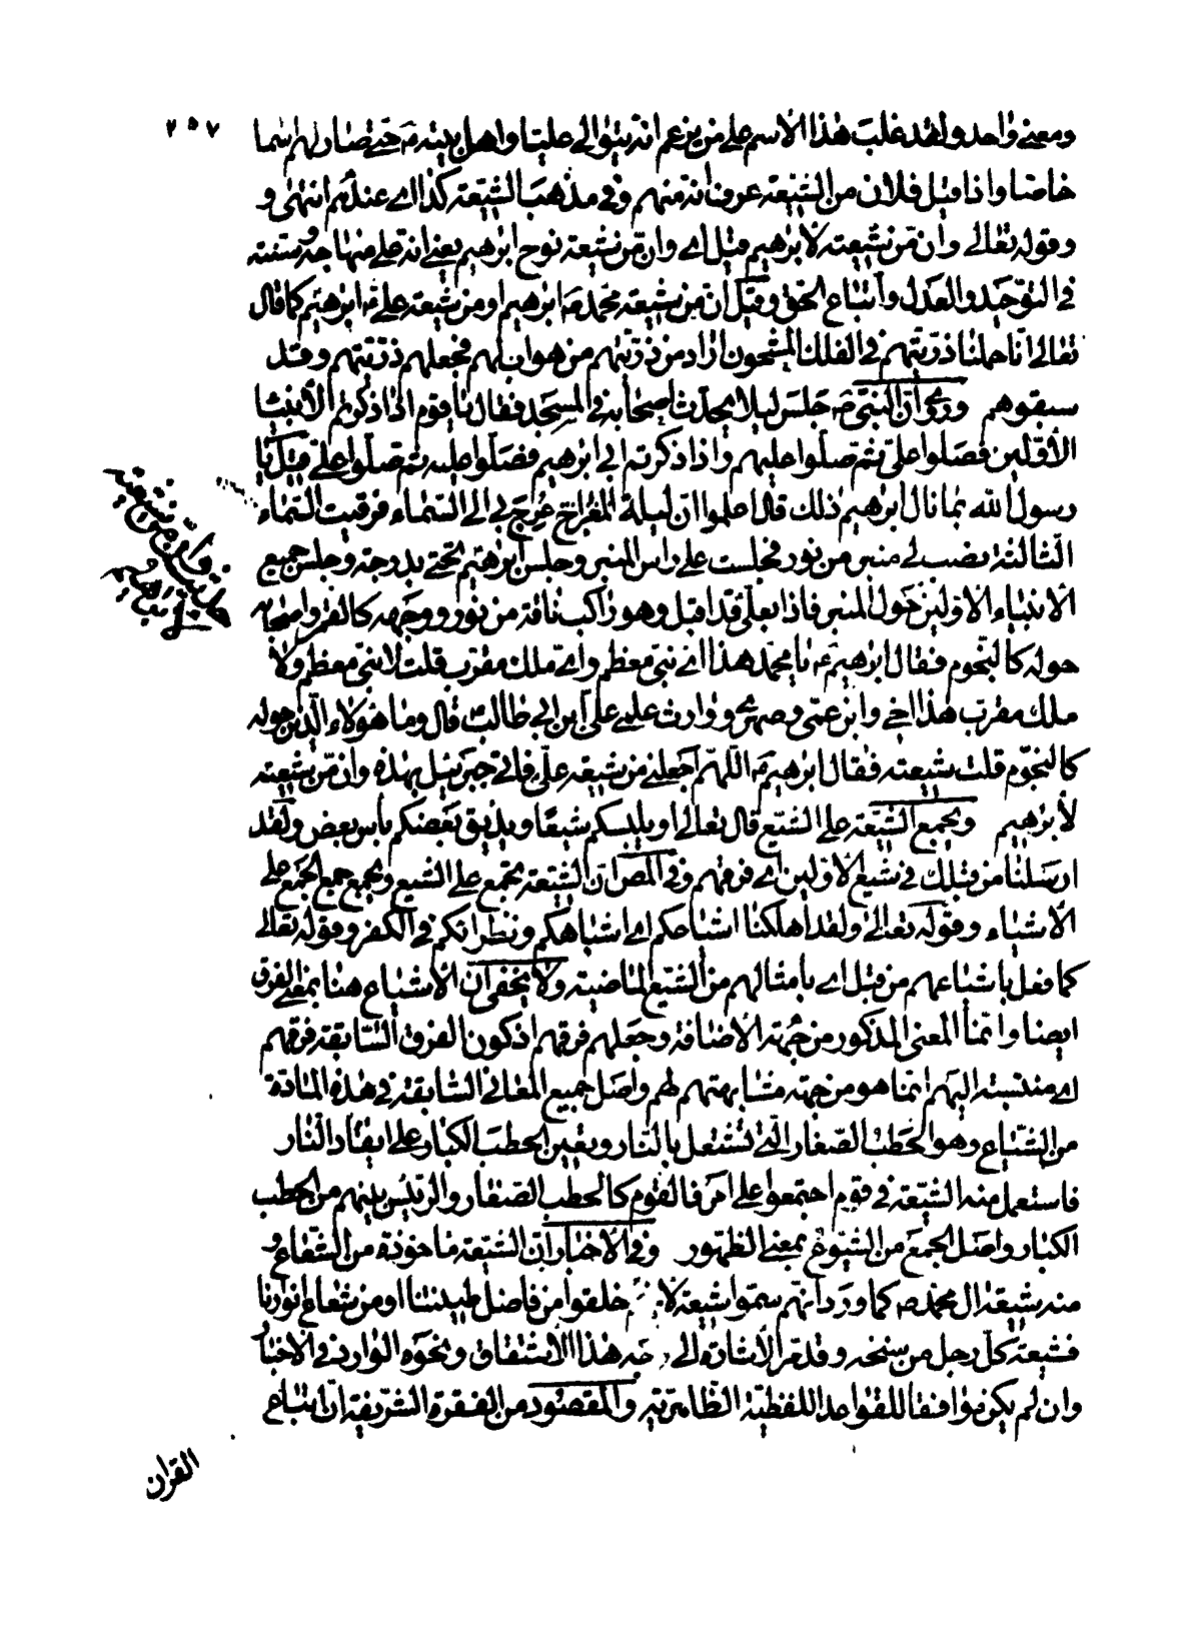 ٢٥٧
ومعنى واحد ولقد غلب هذا الاسم على من يزعم انه يتوالى عليا واهل بيته ع حتى صار لهم اسما
خاصا واذا قيل فلان من الشيعة عرف انه منهم وفى مذهب الشيعة كذا اى عندهم انتهى و
وقوله تعالى وان من شيعته لابرهيم قيل اى وان من شيعة نوح ابرهيم يعنى انه على منهاجه وسنته
فى التوحيد والعدل واتباع الحق وقيل ان من شيعة محمد ص ابرهيم او من شيعة على ع ابرهيم كما قال
تعالى انا حملنا ذريتهم فى الفلك المشحون اراد من ذريتهم من هو اب لهم فجعلهم ذريتهم وقد
سبقوهم وروى ان النبى ص جلس ليلا يحدث اصحابه فى المسجد فقال يا قوم اذا ذكرتم الانبياء
الاولين فصلوا على ثم صلوا عليهم واذا ذكرتم ابى ابرهيم فصلوا عليه ثم صلوا على قيل يا
رسول الله بما نال ابرهيم ذلك قال اعلموا ان ليلة المعراج عرج بى الى السماء فرقيت السماء
الثالثة نصب لى منبر من نور فجلست على راس المنبر وجلس ابرهيم تحتى بدرجة وجلس جميع
الانبياء الاولين حول المنبر فاذا بعلى قد اقبل وهو راكب ناقة من نور ووجهه كالقمر واصحابه
حوله كالنجوم فقال ابرهيم ع يا محمد هذا اى نبى معظم واى ملك مقرب قلت لا نبى معظم ولا
ملك مقرب هذا اخى وابن عمى وصهرى ووارث علمى على ابن ابى طالب قال وما هؤلاء الذين حوله
كالنجوم قلت شيعته فقال ابرهيم ع اللهم اجعلنى من شيعة على فاتى جبرئيل بهذه وان من شيعته
لابرهيم ويجمع الشيعة على الشيع قال تعالى او يلبسكم شيعا ويذيق بعضكم باس بعض ولقد
ارسلنا من قبلك فى شيع الاولين اى فرقهم وفى المص ان الشيعة تجمع على الشيع ويجمع جمع الجمع على
الاشياع وقوله تعالى ولقد اهلكنا اشياعكم اى اشباهكم ونظرائكم فى الكفر وقوله تعالى
كما فعل باشياعهم من قبل اى بامثالهم من الشيع الماضية ولا يخفى ان الاشياع هنا بمعنى الفرق
ايضا وانما المعنى المذكور من جهة الاضافة وجعلهم فرقهم اذ كون الفرق السابقة فرقهم
اى منتسبة اليهم انما هو من جهة مشابهتهم لهم واصل جميع المعانى السابقة فى هذه المادة
من الشياع وهو الحطب الصغار التى تشتعل بالنار ويعين الحطب الكبار على ايقاد النار
فاستعمل منه الشيعة فى قوم اجتمعوا على امر فالقوم كالحطب الصغار والرئيس بينهم من الحطب
الكبار واصل الجمع من الشيوع بمعنى الظهور وفى الاخبار ان الشيعة ماخوذة من الشعاع و
منه شيعة ال محمد ص كما ورد انهم سموا شيعة لانهم خلقوا من فاضل طينتنا او من شعاع انوارنا
فشيعة كل رجل من سنخه وقد مر الاشارة الى وجه هذا الاشتقاق ونحوه الوارد فى الاخبار
وان لم يكن موافقا للقواعد اللفظية الظاهرية والمقصود من الفقرة الشريفة ان اتباع
القران
وان من شيعته
لابرهيم